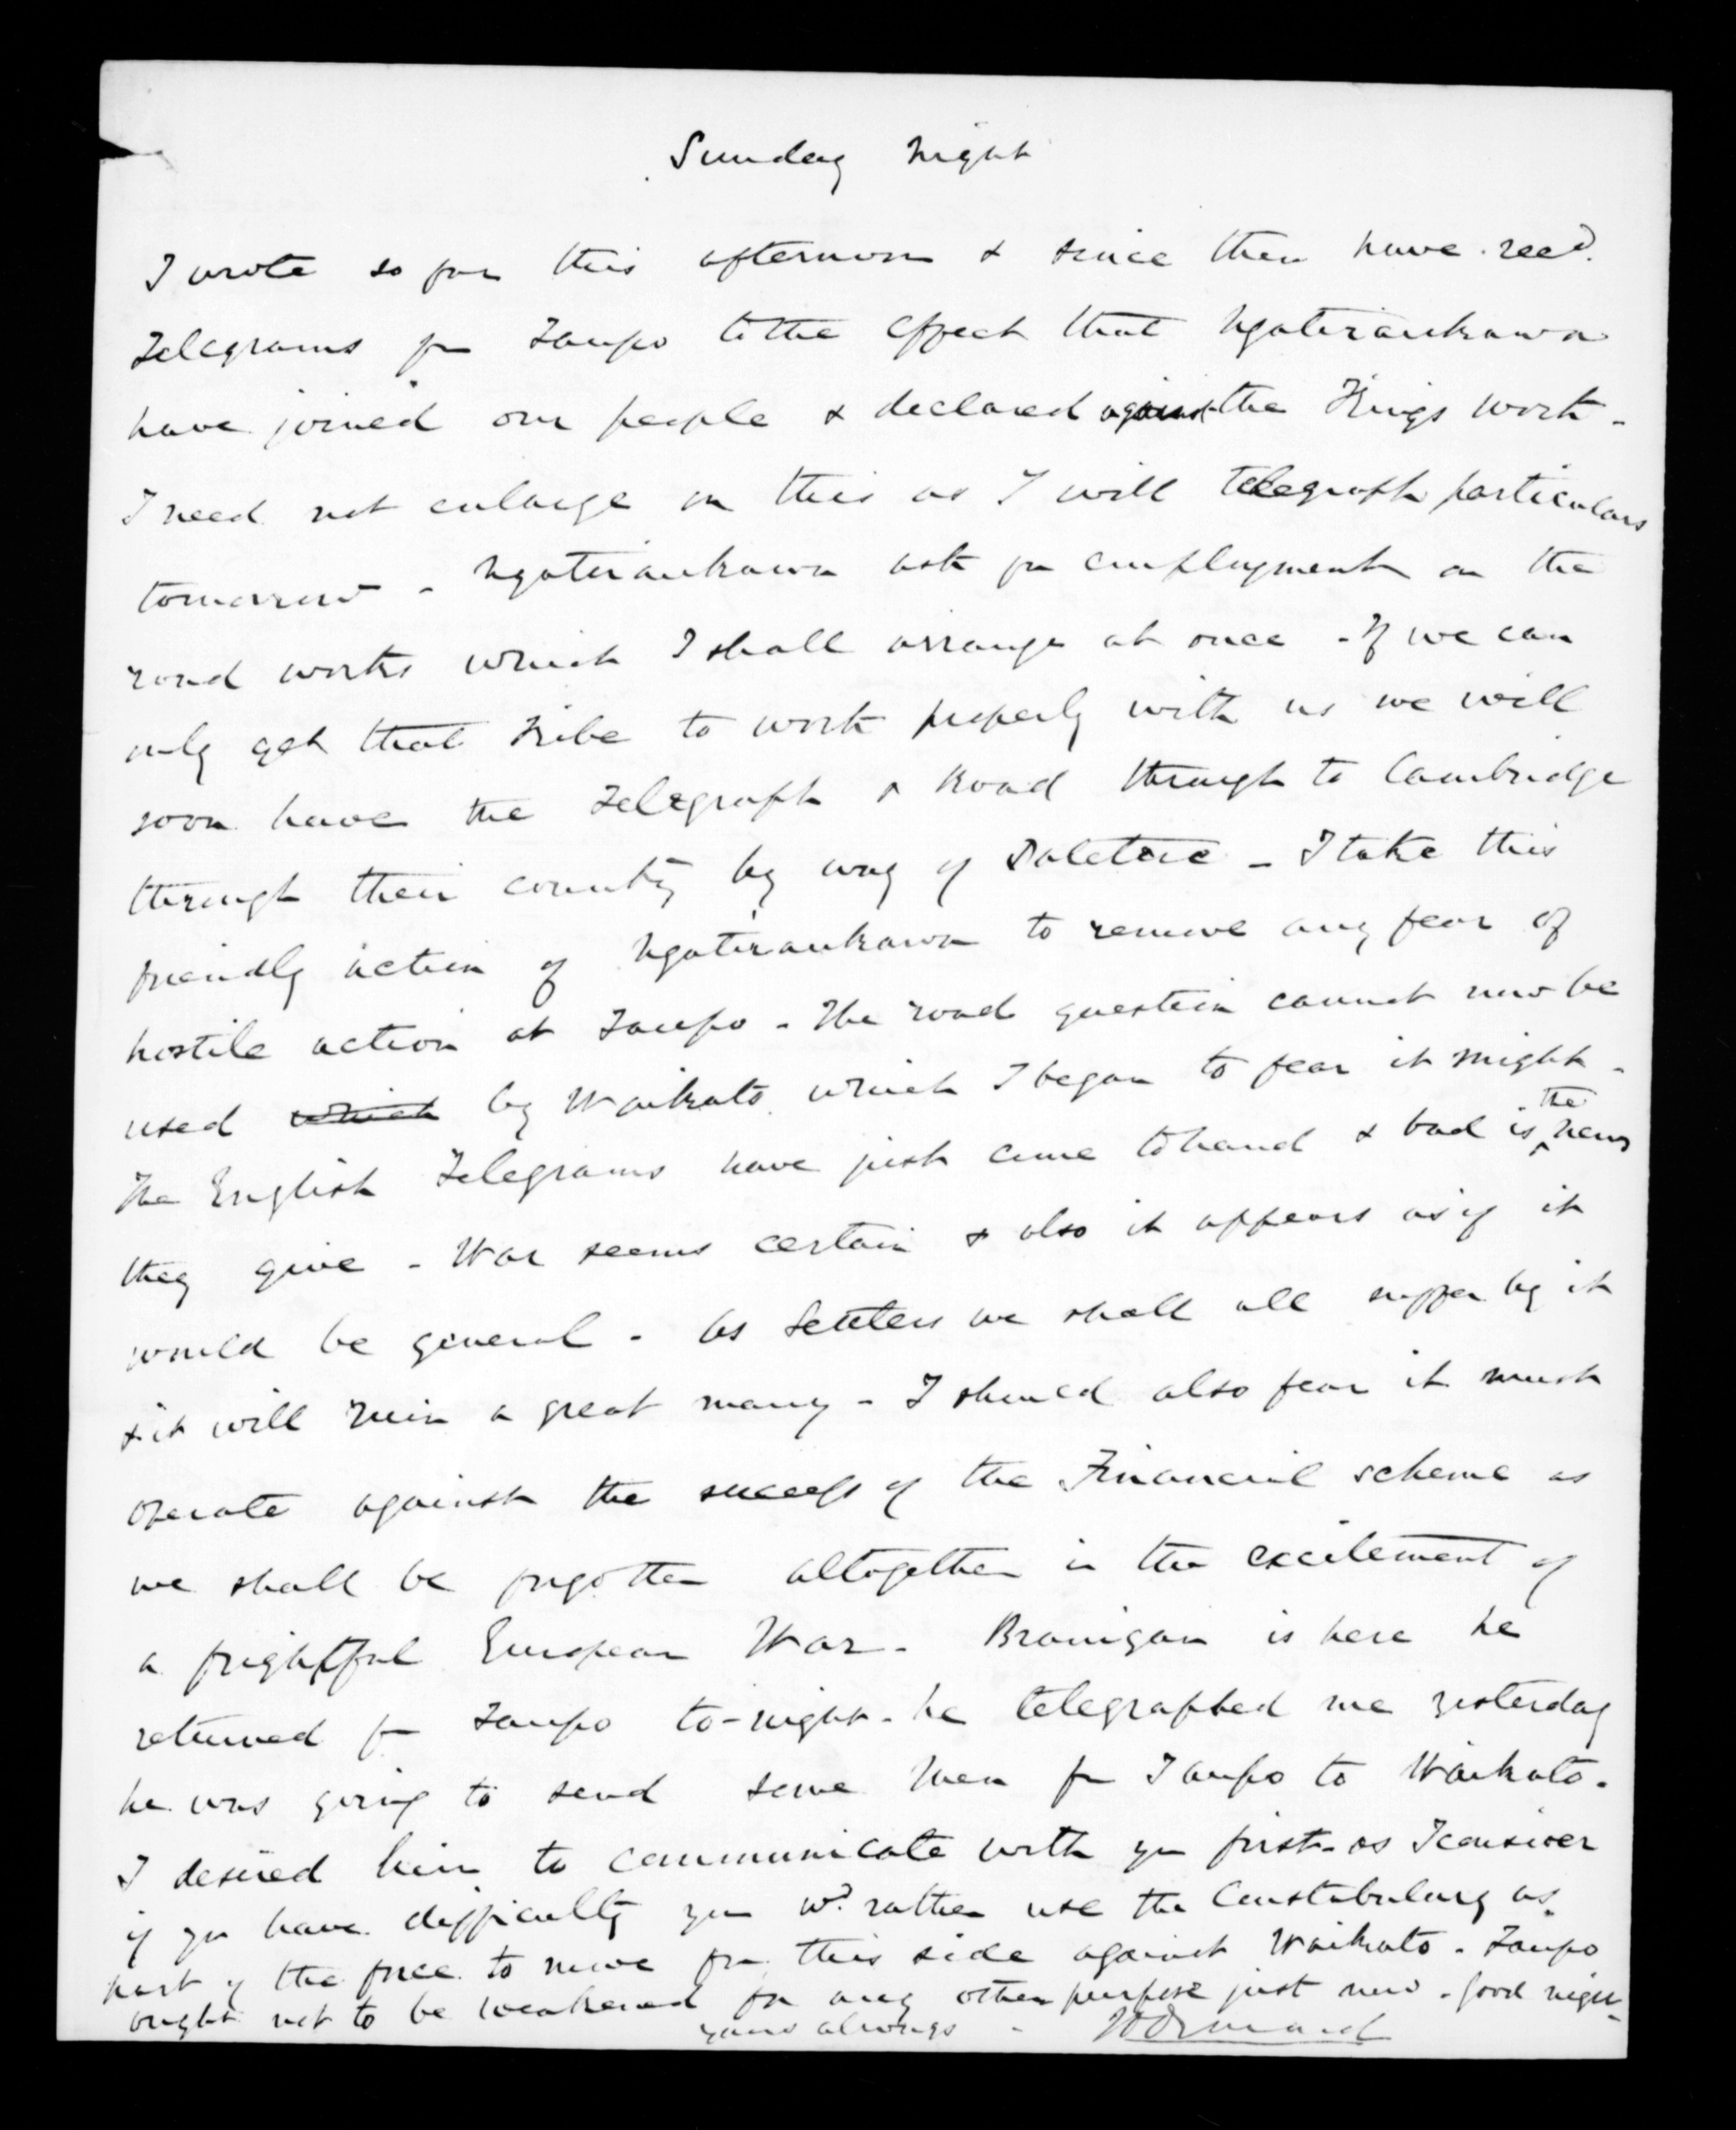 Sunday night
I wrote so far this afternoon & since then have recd.
Telegrams fm Taupo to the effect that Ngatiraukawa
have joined our people & declared against the Kings work -
I need not enlarge on this as I will telegraph particulars
tomorrow - Ngatiraukawa ask for employment on the
road works which I shall arrange at once - If we can
only get that Tribe to work properly with us we will
soon have the Telegraph & Road through to Cambridge
through their country by way of Patetere - I take this
friendly action of Ngatiraukawa to remove any fear of
hostile action at Taupo - The road question cannot now be
used which by Waikato which I began to fear it might -
The English Telegrams have just come to hand & bad is the news
they give - War seems certain & also it appears as if it
would be general - As Settlers we shall all suffer by it
& it will ruin a great many - I should also fear it must
operate against the success of the Financial scheme as
we shall be forgotten altogether in the excitement of
a frightful European War - Branigan is here he
returned fm Taupo to-night - he telegraphed me yesterday
he was going to send some men fm Taupo to Waikato.
I desired him to communicate with you first - as I consider
if you have difficulty you wd. rather use the Constabulary as
part of the force to move fm this side against Waikato - Taupo
ought not to be weakened for any other purpose just now - good night -
yours always - JDOrmond